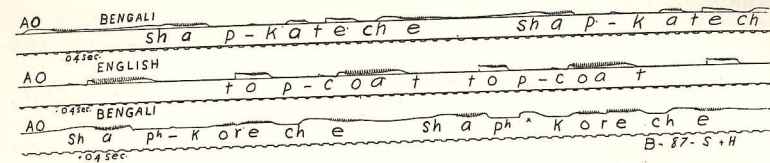 AO BENGALI
sha p-kateche sha p-katech
.04sec. ENGLISH
AO top-coat top-coat
.04sec. BENGALI
AO sha ph-koreche shaph^koreche
.04sec. B-87-S+H